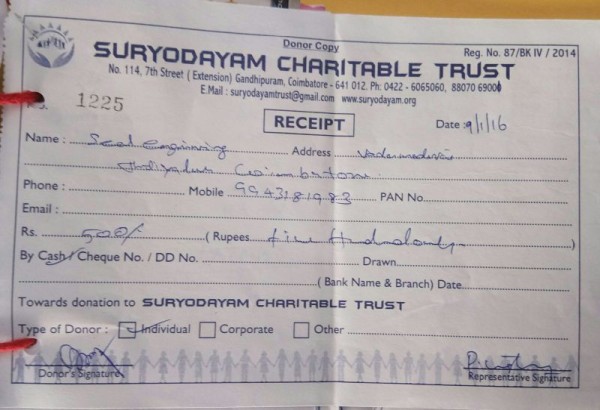 Donor Copy
Reg. No. 87/BK IV / 2014
SURYODAYAM CHARITABLE TRUST
No. 114, 7th Street ( Extension) Gandhipuram, Coimbatore - 641 012. Ph: 0422 - 6065060, 88070 69000
E.Mail : suryodayamtrust@gmail.com www.suryodayam.org
1225
RECEIPT
Date : 9/1/16
Name : Seed Address
Coimbatore
Phone : Mobile 9943181983 PAN No.
Email :
Rs. 500/- ( Rupees five Hundred only )
By Cash/ Cheque No. / DD No. Drawn
( Bank Name & Branch) Date
Towards donation to SURYODAYAM CHARITABLE TRUST
Type of Donor : Individual Corporate Other
Donor's Signature Representative Signature